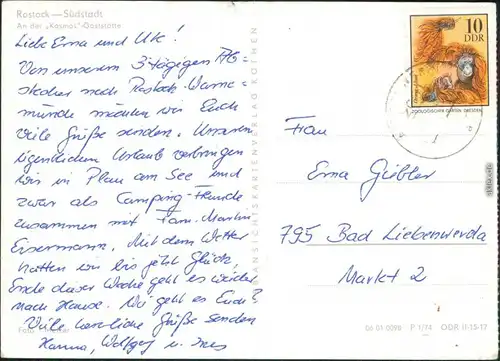 Rostock—Südstadt
An der „Kosmos"-Gaststätte
Liebe Erna und Ute!
Von unserem 3tägigen Ab-
stecher nach Rostock-Warne-
münde möchten wir Euch
viele Grüße senden. Unseren
eigentlichen Urlaub verbringen
wir in Plau am See und
zwar als Camping-Freunde
zusammen mit Fam. Martin
Eisermann. Mit dem Wetter
hatten wir bis jetzt Glück.
Ende dieser Woche geht es wieder
nach Hause. Wie geht es Euch?
Viele herzliche Grüße senden
Hanna, Wolfgang u. Ines
Foto
ANSICHTSKARTENVERLAG KÖTHEN
10
DDR
Frau
Erna Gübler
795 Bad Liebenwerda
Markt 2
06 01 0098 P 1/74 DDR II-15-17